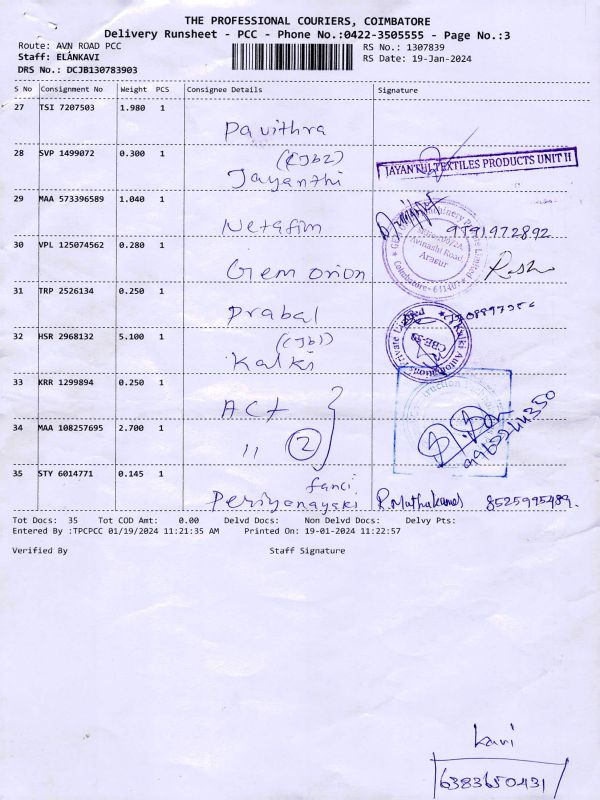 THE PROFESSIONAL COURIERS, COIMBATORE
Delivery Runsheet - PCC - Phone No.:0422-3505555 - Page No.:3
Route: AVN ROAD PCC
RS No.: 1307839
Staff: ELANKAVI
RS Date: 19-Jan-2024
DRS No.: DCJB130783903
S No Consignment No Weight PCS Consignee Details Signature
27 TSI 7207503 1.980 1
Pavithra
28 SVP 1499072 0.300 1
(CJb2)
Jayanthi
JAYANTHI TEXTILES PRODUCTS UNIT II
29 MAA 573396589 1.040 1
Netafim
9791972892
30 VPL 125074562 0.280 1
Gem orion
Avinashi Road
Arasur
Coimbatore - 641407
31 TRP 2526134 0.250 1
Prabal
32 HSR 2968132 5.100 1
(CJb1)
Kalki
Kalki Automations Private Limited
CBE-59
33 KRR 1299894 0.250 1
ACt
34 MAA 108257695 2.700 1
11 2
35 STY 6014771 0.145 1
fanci
Periyanayaki R.Muthukumar 8525995489.
Tot Docs: 35 Tot COD Amt: 0.00 Delvd Docs: Non Delvd Docs: Delvy Pts:
Entered By :TPCPCC 01/19/2024 11:21:35 AM Printed On: 19-01-2024 11:22:57
Verified By Staff Signature
kavi
6383650431